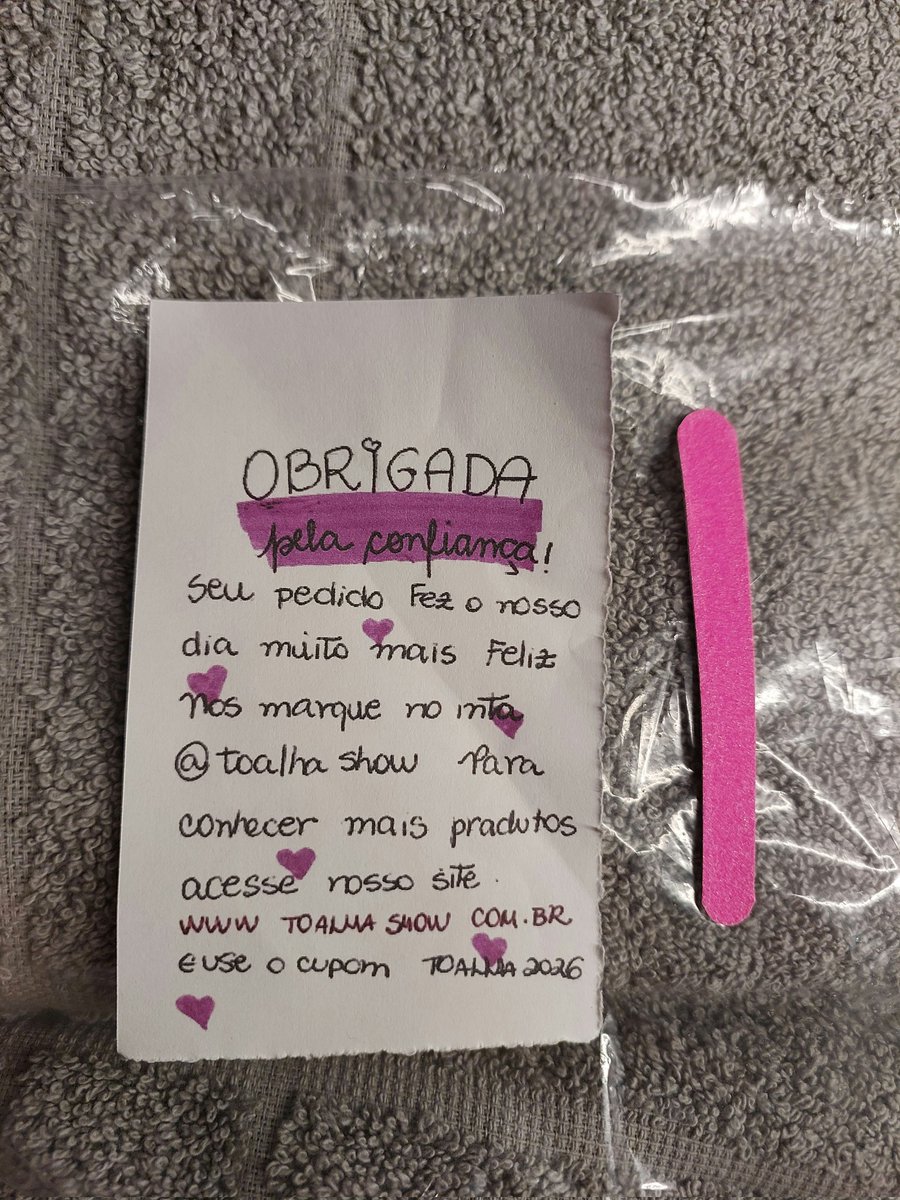 OBRIGADA
pela confiança!
Seu pedido Fez o nosso
dia muito mais Feliz
Nos marque no inta
@toalha show Para
conhecer mais produtos
acesse nosso site.
WWW TOALHA SHOW COM.BR
E use o cupom TOALHA 2026